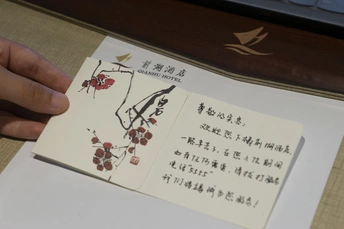 前湖酒店
QIANHU HOTEL
尊敬的宾客：
欢迎您下榻前湖酒店
一路辛苦了，在您入住期间
如有任何需要，请拨打服务
电话“5555”
我们将竭诚为您服务！